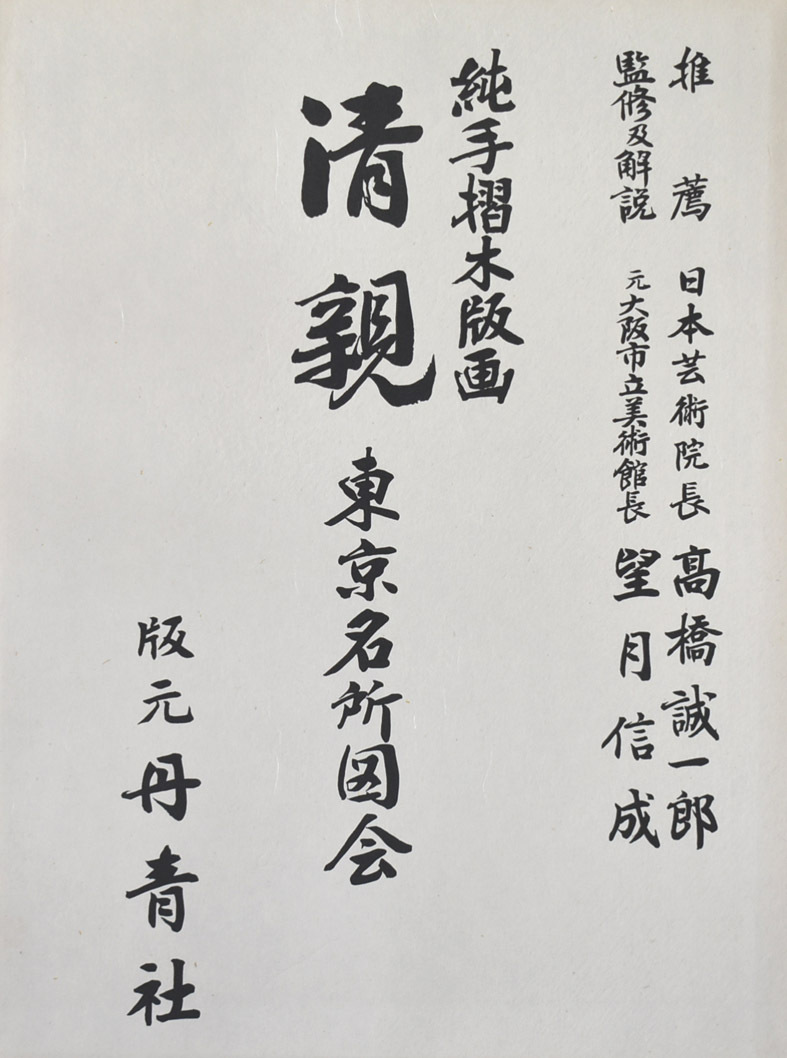 推薦 日本芸術院長 高橋誠一郎
監修及解説 元大阪市立美術館長 望月信成
純手摺木版画
清親 東京名所図会
版元 丹青社